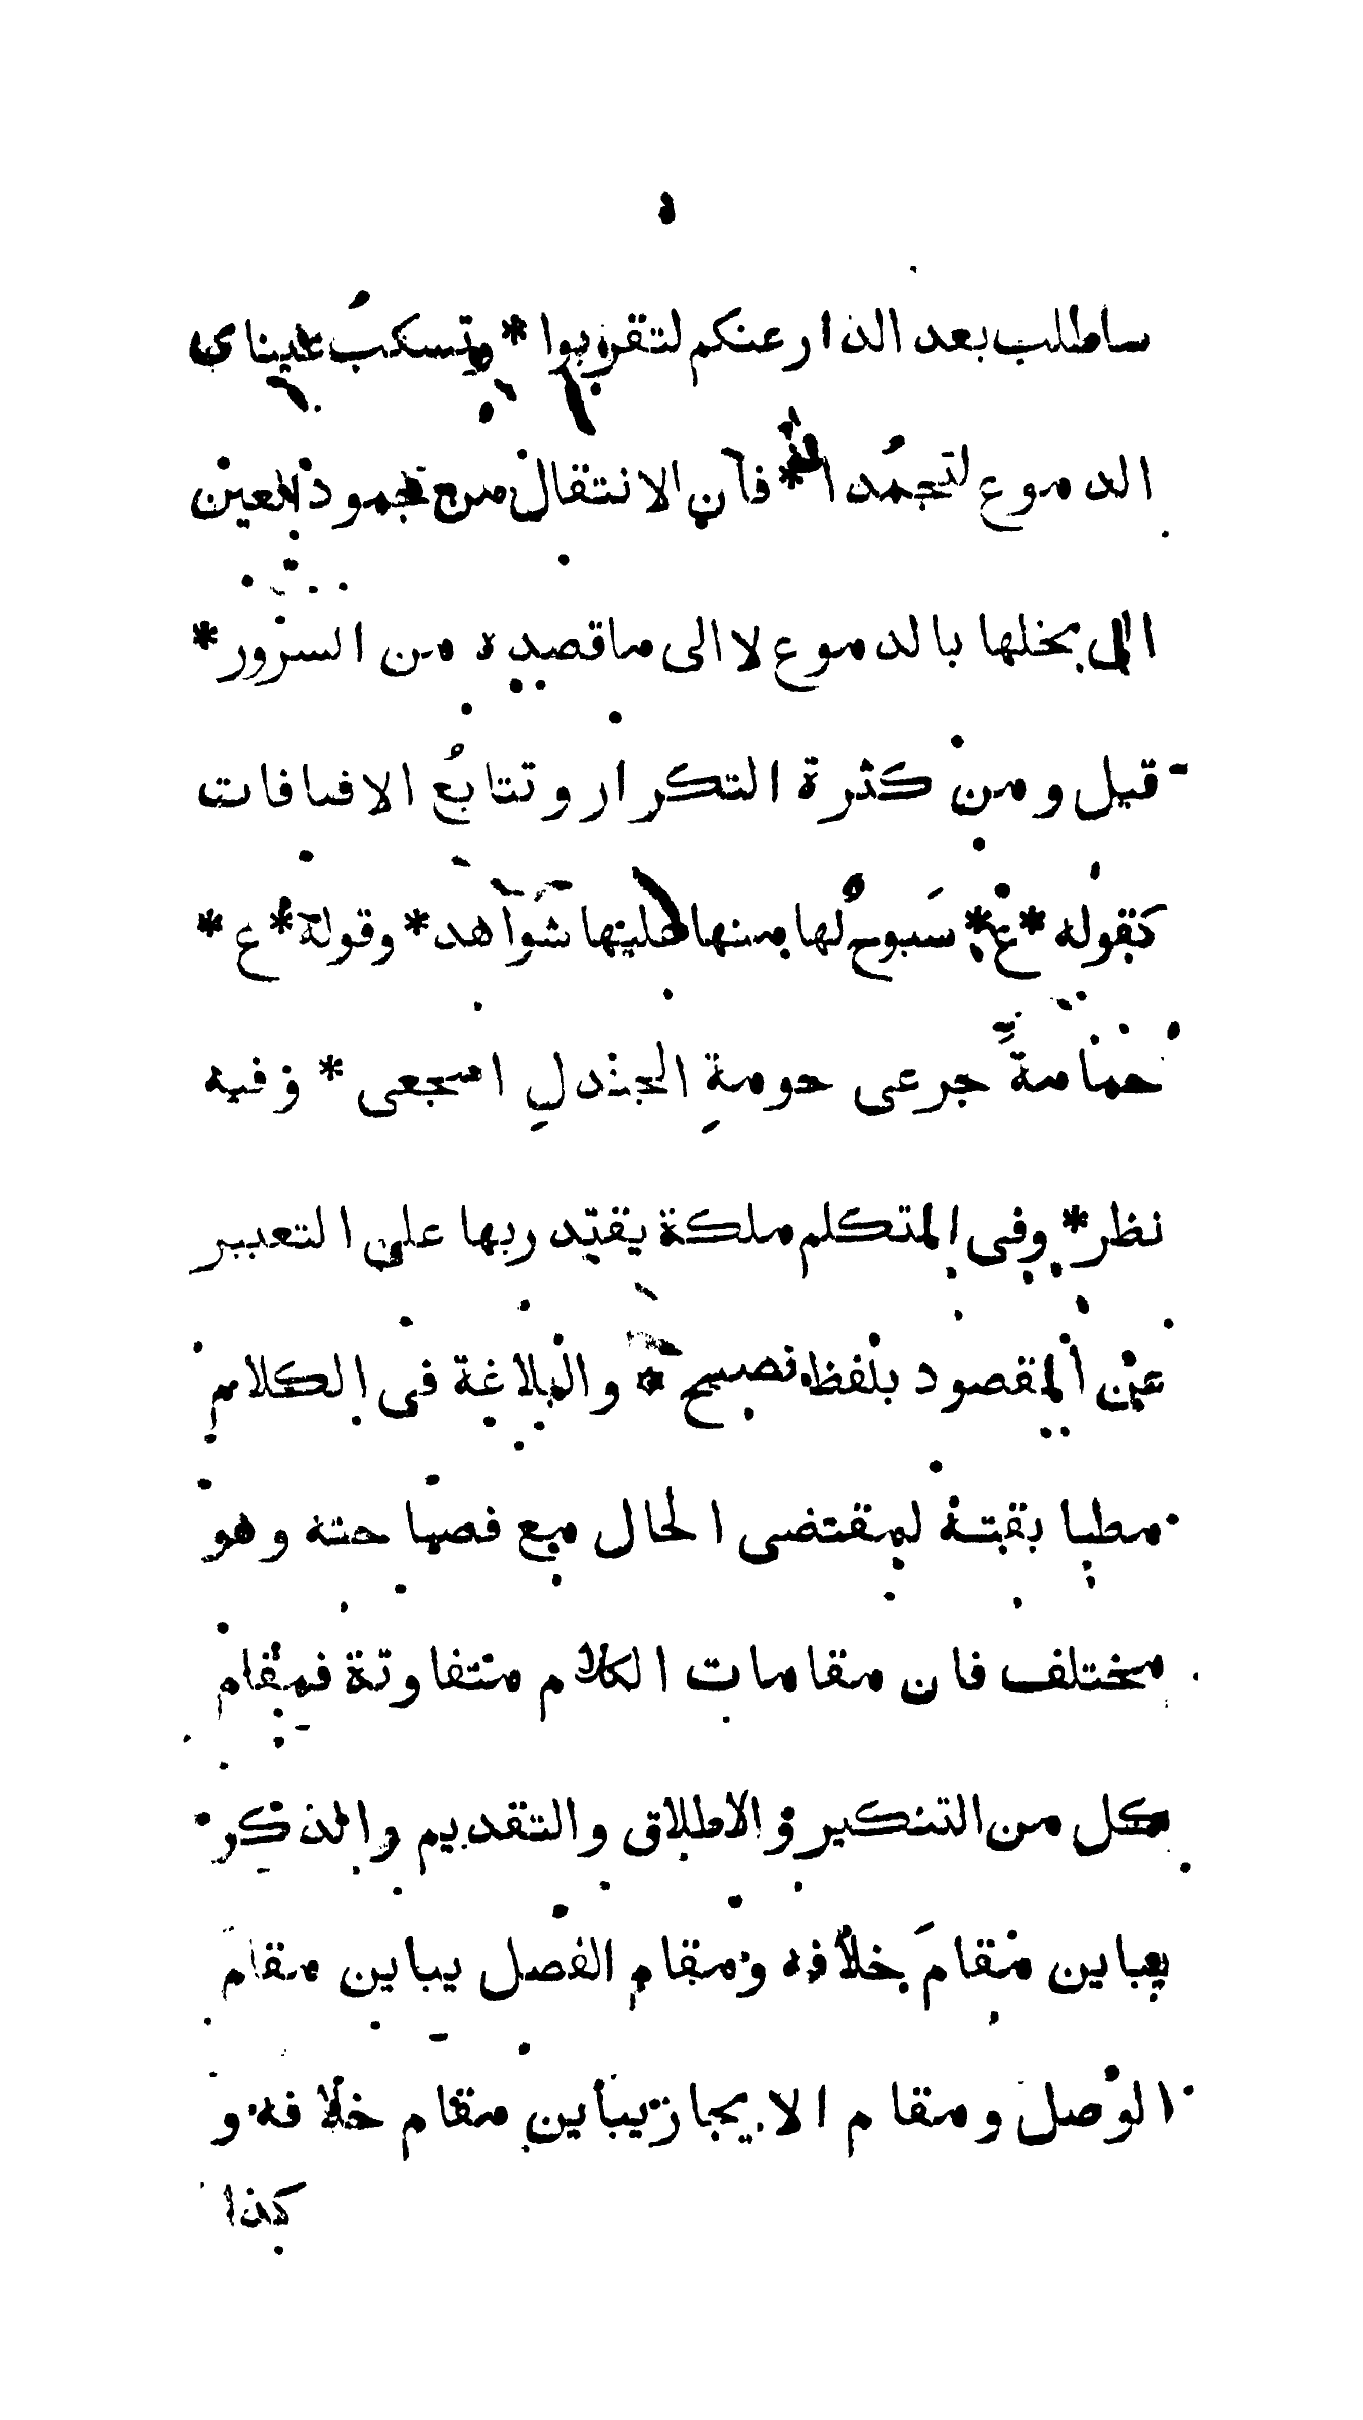 ٥
ساطلب بعد الدار عنكم لتقربوا * وتسكبُ عيناى
الدموع لتجمُدا * فان الانتقال من جمود العين
الى بخلها بالدموع لا الى ماقصده من السرور *
قيل ومن كثرة التكرار وتتابُع الاضافات
كقوله * ع * سَبوحٌ لها منها عليها شواهد * وقوله * ع *
حمامةَ جرعى حومةِ الجندلِ اسجعى * وفيه
نظر * وفى المتكلم ملكة يقتدر بها على التعبير
عن المقصود بلفظ فصيح * والبلاغة فى الكلام
مطابقته لمقتضى الحال مع فصاحته وهو
مختلف فان مقامات الكلام متفاوتة فمقام
كل من التنكير والاطلاق والتقديم والذكر
يباين مقامَ خلافه ومقام الفصل يباين مقامَ
الوصل ومقام الايجاز يباين مقام خلافه و
كذا